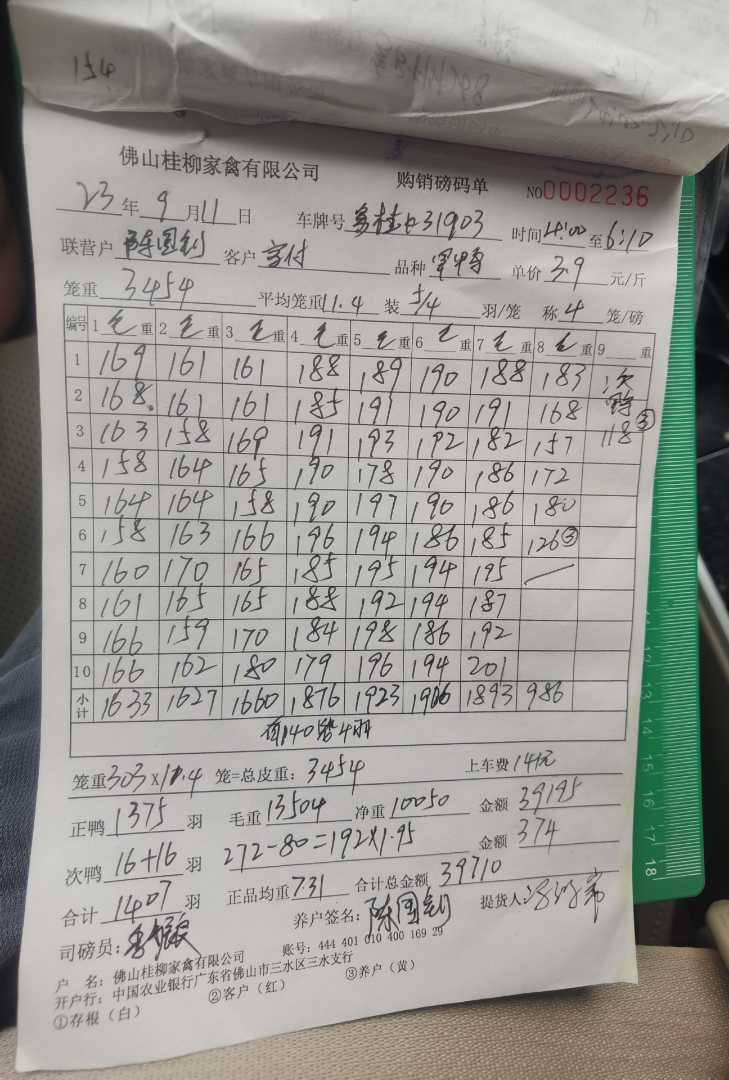 154
佛山桂柳家禽有限公司 购销磅码单 NO0002236
23年9月11日 车牌号 31903 时间4:00至6:10
联营户 陈国钊 客户 品种 单价3.9元/斤
笼重3454 平均笼重11.4 装5/4羽/笼 称4笼/磅
编号 1毛重 2毛重 3毛重 4毛重 5毛重 6毛重 7毛重 8毛重 9重
1 169 161 161 188 189 190 188 183 次
2 168 161 161 185 191 190 191 168
3 163 158 169 191 193 192 182 157 118③
4 158 164 165 190 178 190 186 172
5 164 164 158 190 197 190 186 180
6 158 163 166 196 194 186 185 126③
7 160 170 165 185 195 194 195
8 161 165 165 188 192 194 187
9 166 159 170 184 198 186 192
10 166 162 180 179 196 194 201
小计 1633 1627 1660 1876 1923 1906 1893 986
有140笼4羽
笼重303×11.4笼=总皮重:3454 上车费141元
正鸭1375羽 毛重13504 净重10050 金额39195
次鸭16+16羽 272-80=192×1.95 金额374
合计1407羽 正品均重7.31 合计总金额39710
司磅员: 养户签名:陈国钊 提货人:
户 名:佛山桂柳家禽有限公司 账号:444 401 010 400 169 29
开户行:中国农业银行广东省佛山市三水区三水支行
①存根(白) ②客户(红) ③养户(黄)
11
12
13
14
15
16
17
18